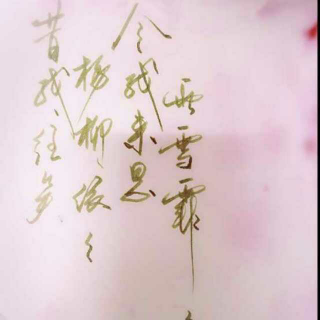 昔我往矣
杨柳依々
今我来思
雨雪霏々